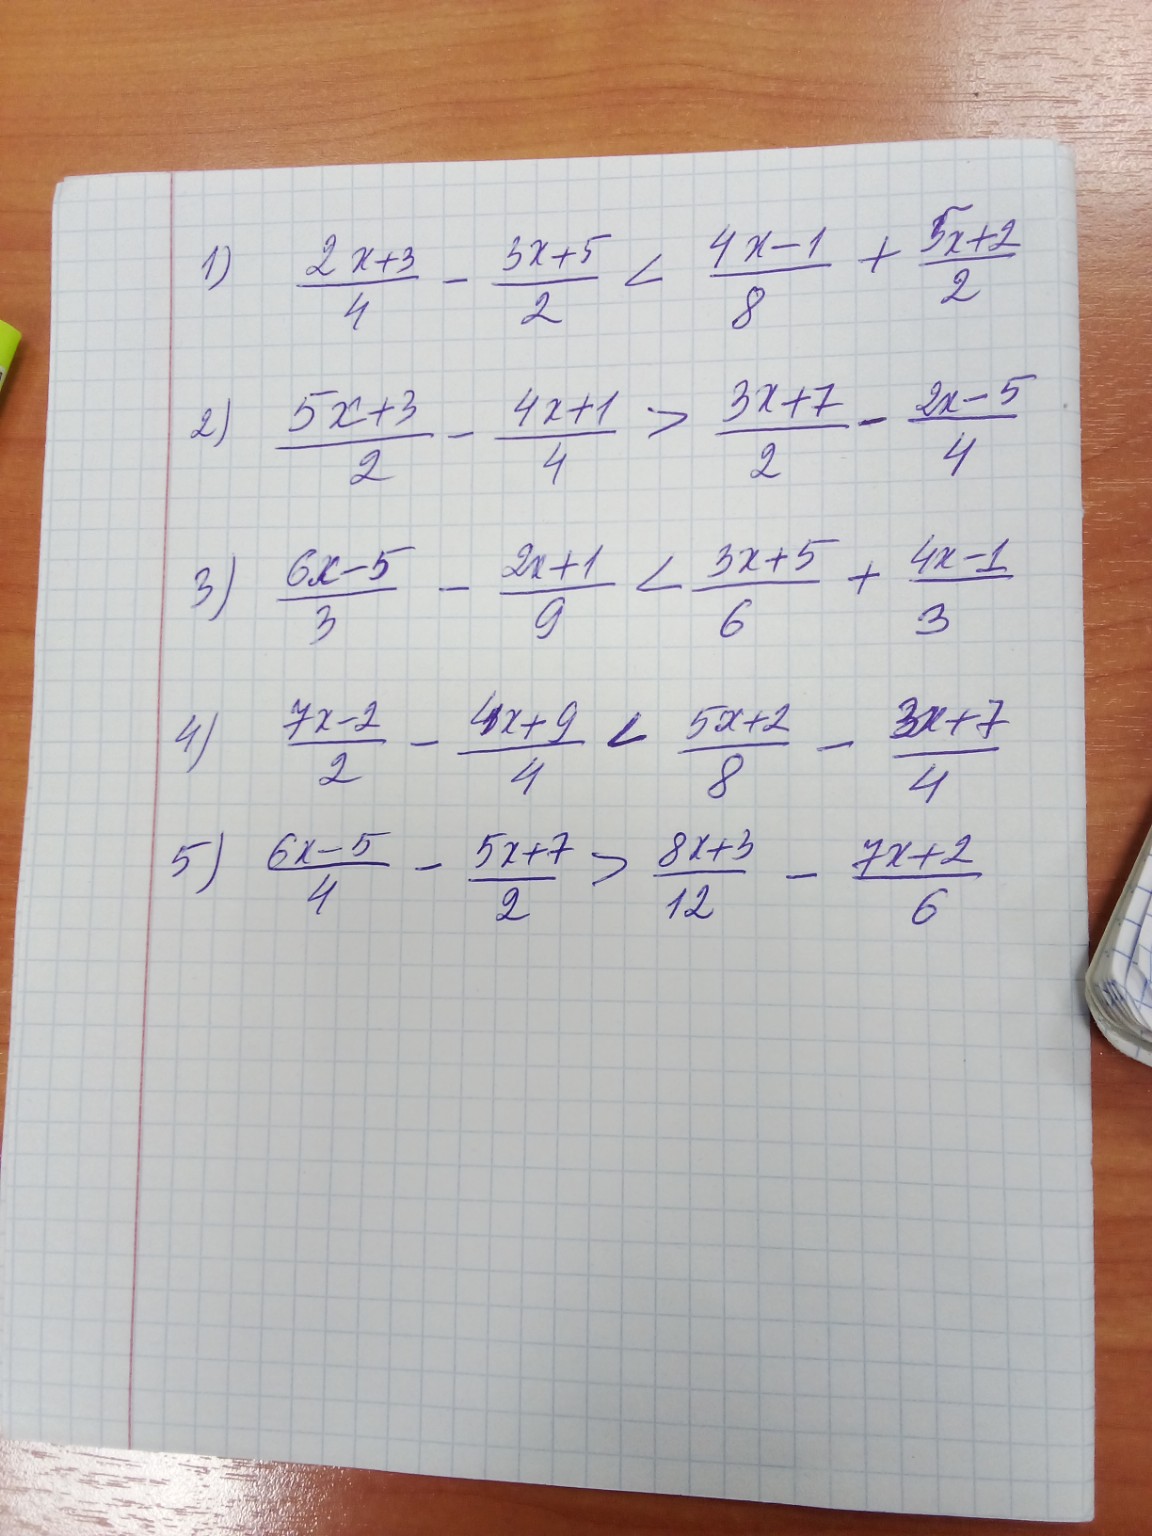 1) (2x+3)/4 - (3x+5)/2 < (4x-1)/8 + (5x+2)/2
2) (5x+3)/2 - (4x+1)/4 > (3x+7)/2 - (2x-5)/4
3) (6x-5)/3 - (2x+1)/9 < (3x+5)/6 + (4x-1)/3
4) (7x-2)/2 - (4x+9)/4 < (5x+2)/8 - (3x+7)/4
5) (6x-5)/4 - (5x+7)/2 > (8x+3)/12 - (7x+2)/6